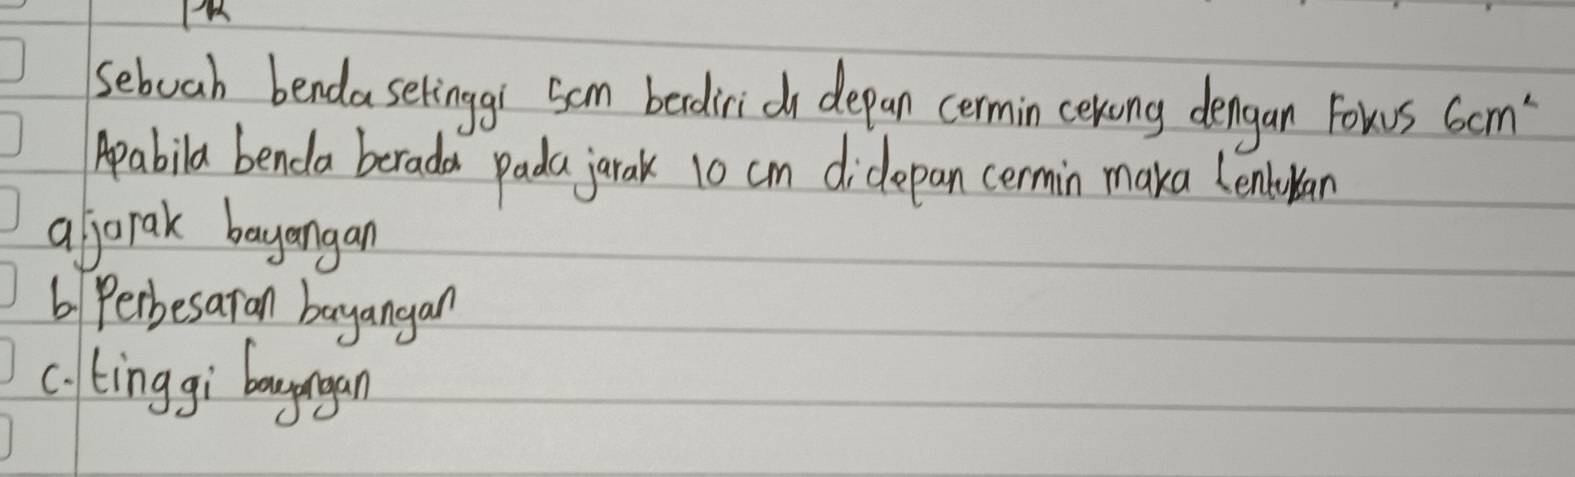 PR
Sebuah benda setinggi 5cm berdiri di depan cermin cekung dengan Fokus 6cm
Apabila benda berada pada jarak 10 cm didepan cermin maka tentukan
a. jarak bayangan
b. Perbesaran bayangan
c. tinggi bayangan